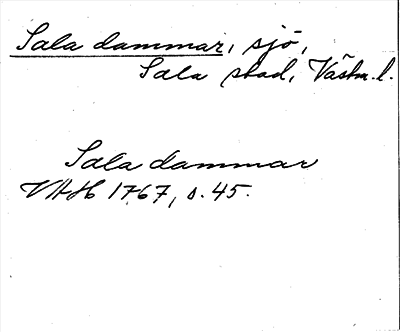 Sala dammar, sjö,
Sala stad, Västm. l.
Sala dammar
VAH 1767, s. 45.